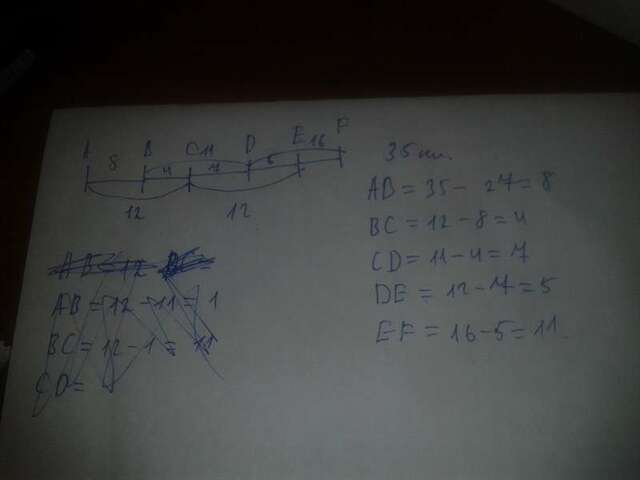 A B C 11 D E 16 F
8 4 7 5
12 12
35 км.
AB = 35 - 27 = 8
BC = 12 - 8 = 4
CD = 11 - 4 = 7
DE = 12 - 7 = 5
EF = 16 - 5 = 11
AB = 12 - 11 = 1
BC = 12 - 1 = 11
CD =